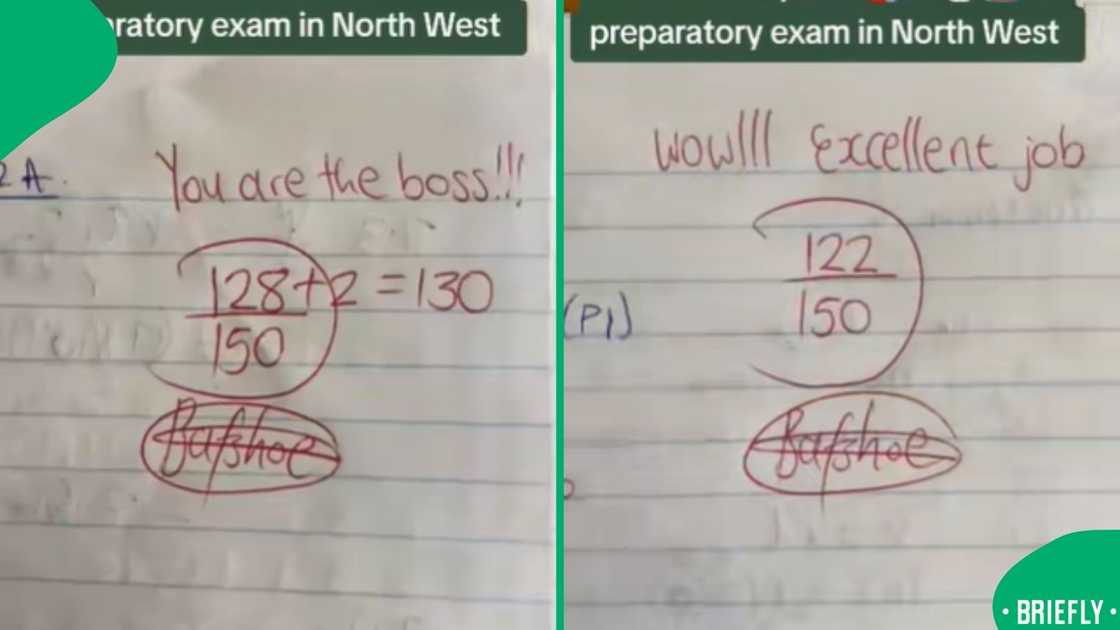 ratory exam in North West
2A.
You are the boss!!!
128+2=130
150
Bafshoe
preparatory exam in North West
Wow!!! Excellent job
122
150
(P1)
Bafshoe
• BRIEFLY •